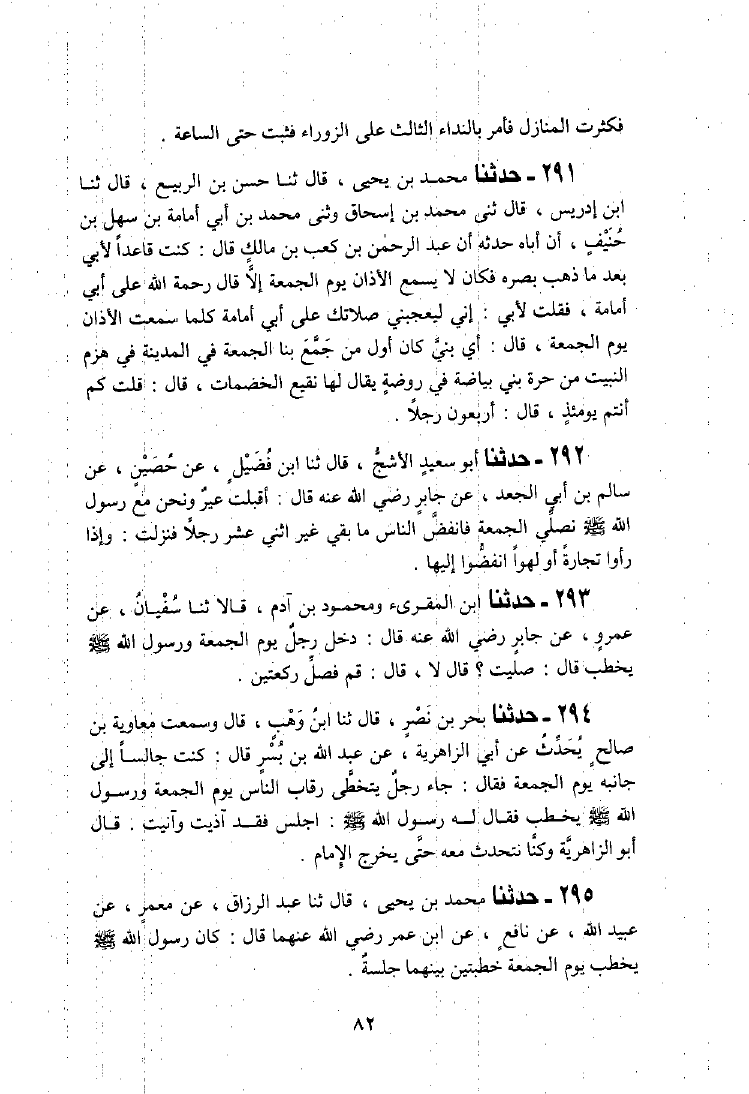 فكثرت المنازل فأمر بالنداء الثالث على الزوراء فثبت حتى الساعة .
٢٩١ - حدثنا محمد بن يحيى ، قال ثنا حسن بن الربيع ، قال ثنا
ابن إدريس ، قال ثنى محمد بن إسحاق وثنى محمد بن أبي أمامة بن سهل بن
حُنَيْفٍ ، أن أباه حدثه أن عبد الرحمٰن بن كعب بن مالكٍ قال : كنت قاعداً لأبي
بعد ما ذهب بصره فكان لا يسمع الأذان يوم الجمعة إلَّا قال رحمة الله على أبي
أمامة ، فقلت لأبي : إني ليعجبني صلاتك على أبي أمامة كلما سمعت الأذان
يوم الجمعة ، قال : أي بنيَّ كان أول من جَمَّعَ بنا الجمعة في المدينة في هزم
النبيت من حرة بني بياضة في روضةٍ يقال لها نقيع الخضمات ، قال : قلت كم
أنتم يومئذٍ ، قال : أربعون رجلاً .
٢٩٢ - حدثنا أبو سعيدٍ الأشجُّ ، قال ثنا ابن فُضَيْلٍ ، عن حُصَيْنٍ ، عن
سالم بن أبي الجعد ، عن جابرٍ رضي الله عنه قال : أقبلت عيرٌ ونحن مع رسول
الله ﷺ نصلِّي الجمعة فانفضَّ الناس ما بقي غير اثني عشر رجلًا فنزلت : وإذا
رأوا تجارةً أو لهواً انفضُّوا إليها .
٢٩٣ - حدثنا ابن المقرىء ومحمود بن آدم ، قالا ثنا سُفْيانُ ، عن
عمرٍو ، عن جابرٍ رضي الله عنه قال : دخل رجلٌ يوم الجمعة ورسول الله ﷺ
يخطب قال : صليت ؟ قال لا ، قال : قم فصلِّ ركعتين .
٢٩٤ - حدثنا بحر بن نَصْرٍ ، قال ثنا ابنُ وَهْبٍ ، قال وسمعت معاوية بن
صالحٍ يُحَدِّثُ عن أبي الزاهرية ، عن عبد الله بن بُسْرٍ قال : كنت جالساً إلى
جانبه يوم الجمعة فقال : جاء رجلٌ يتخطَّى رقاب الناس يوم الجمعة ورسول
الله ﷺ يخطب فقال له رسول الله ﷺ : اجلس فقد آذيت وآنيت . قال
أبو الزاهريَّة وكنَّا نتحدث معه حتَّى يخرج الإِمام .
٢٩٥ - حدثنا محمد بن يحيى ، قال ثنا عبد الرزاق ، عن معمرٍ ، عن
عبيد الله ، عن نافعٍ ، عن ابن عمر رضي الله عنهما قال : كان رسول الله ﷺ
يخطب يوم الجمعة خطبتين بينهما جلسةٌ .
٨٢